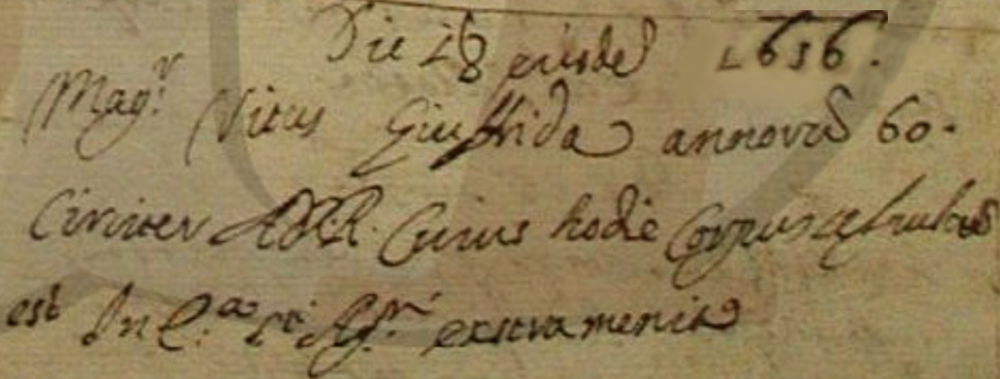 Die 28 eiusdē 1656.
Magr Vitus Giuffrida annorū 60.
Circiter Cuius hodie Corpus sepultū
est In Ecca Sti extra menia